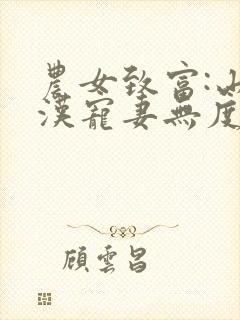 農女致富:山
漢寵妻無度
顧雲昌